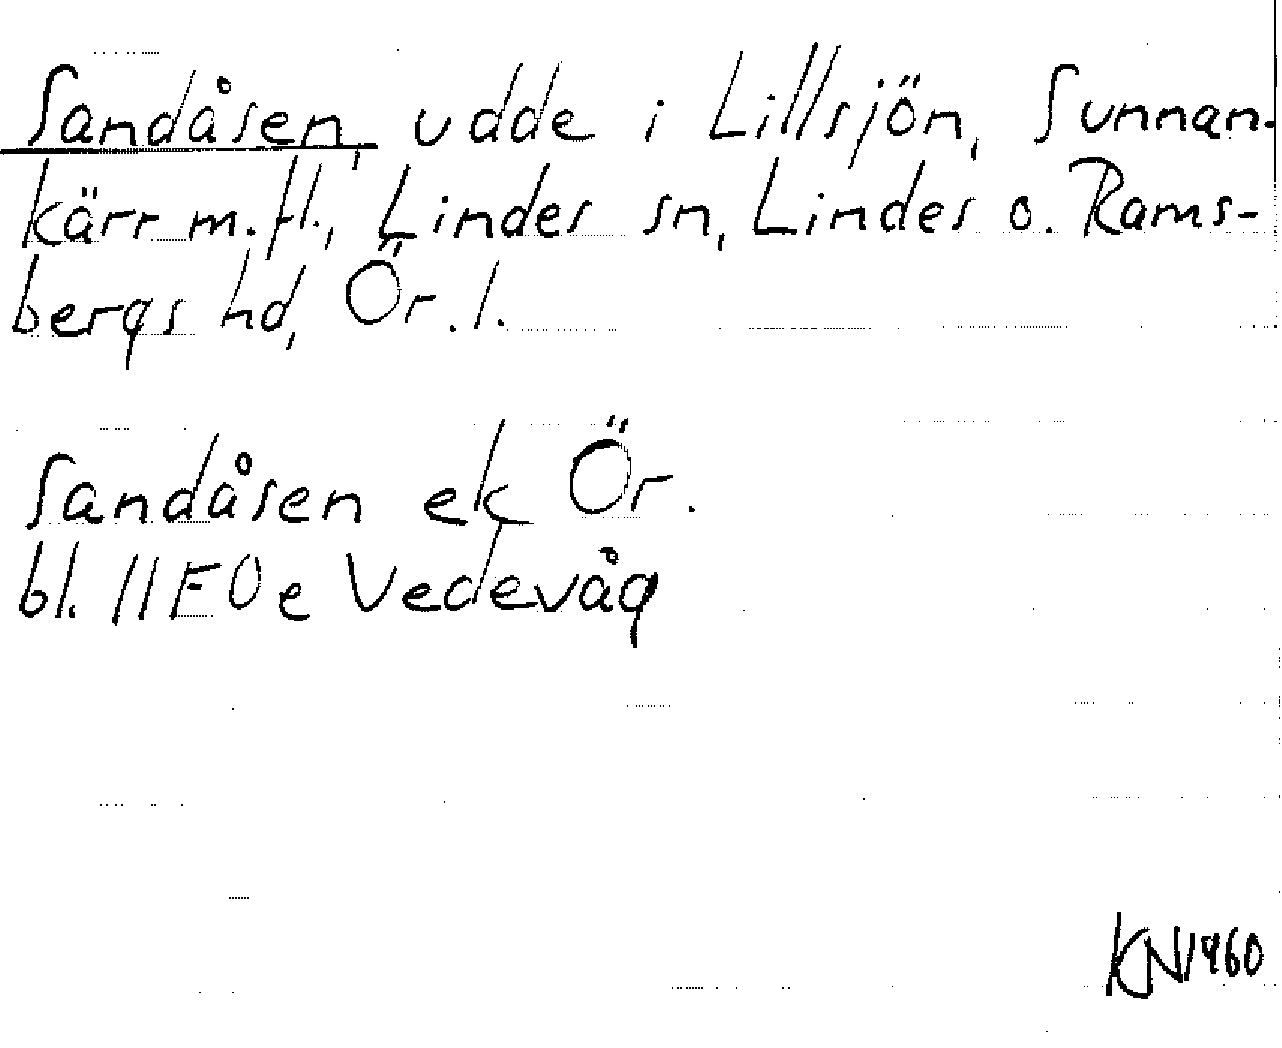 Sandåsen, udde i Lillsjön, Sunnan-
kärr m.fl., Lindes sn, Lindes o. Rams-
bergs hd, Ör. l.
Sandåsen ek Ör.
bl. 11F0e Vedevåg
KN 1960